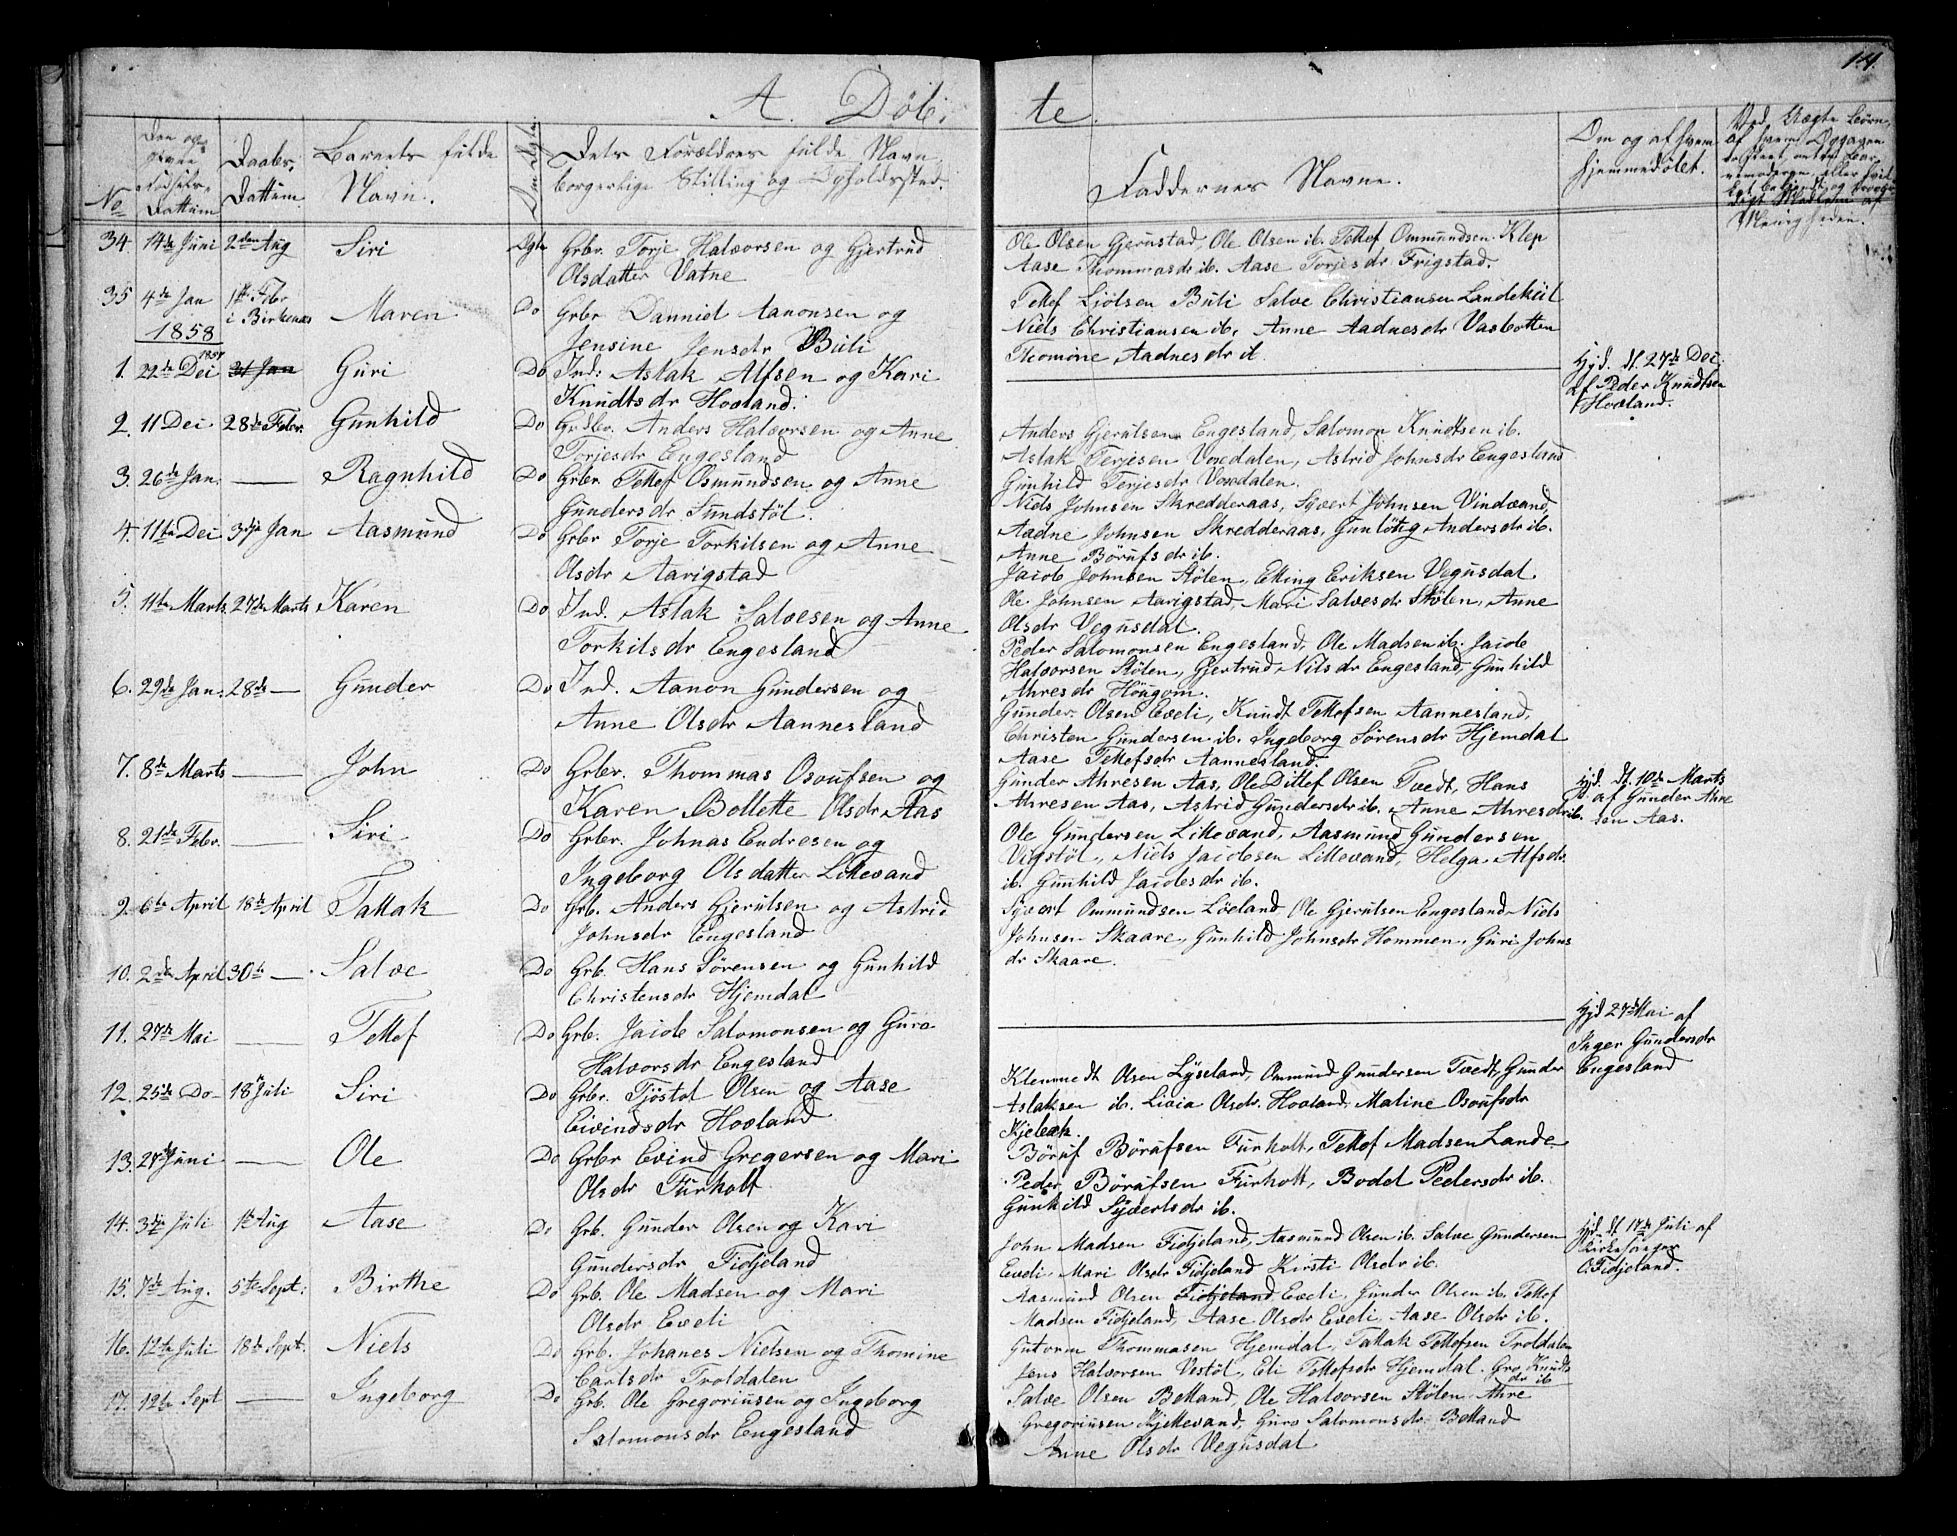 14.
A. Döb-
te.
No
Den og
Fødsels-
Dattum
Daabs-
Dattum
Barnets fulde
Navn.
Om Ægte
Dets Forældres fulde Navn
borgerlige Stilling og Opholdssted.
Faddernes Navne.
Om og af hvem
hjemmedöbt.
Menigheden.
34. 14de Juni 2den Aug Siri Ægte Grbr. Torje Halvorsen og Gjertrud
Olsdatter Vatne
Ole Olsen Gjerustad, Ole Olsen ib. Tellef Ommundsen Klep
Aase Thommasdr ib. Aase Torjesdr Frigstad.
35 4de Jan 1ste Febr i Birkenæs Maren Do Grbr Danniel Aanonsen og
Jensine Jensdr Buli
Tellef Liölsen Buli Salve Christiansen Landekiil
Niels Christiansen ib. Anne Aadnesdr Vasbotten
Thomine Aadnesdr ib.
1858
1. 22de Dec 1857 31 Jan Guri Do Ind: Aslak Alfsen og Kari
Knudtsdr Hovland.
Hjd. d. 27de Dec:
af Peder Knudtsen
Hovland.
2. 11 Dec 28de Febr. Gunhild Do Grdbr. Anders Halvorsen og Anne
Torjesdr Engesland
Anders Gjerulsen Engesland, Salomon Knudtsen ib.
Aslak Terjesen Voxedalen, Astrid Johnsdr Engesland
Gunhild Terjesdr Voxdalen.
3. 26de Jan. — Ragnhild Do Grbr. Tellef Osmundsen og Anne
Gundersdr Sundstöl.
Niels Johnsen Skredderaas, Syvert Johnsen Vindvand,
Aadne Johnsen Skredderaas, Gunlöug Andersdr ib.
Anne Börufsdr ib.
4. 11te Dec 3die Jan Aasmund Do Grbr Torje Torkilsen og Anne
Olsdr Aarigstad
Jacob Johnsen Stölen, Elling Eriksen Vegusdal
Ole Johnsen Aarigstad, Mari Salvesdr Stölen, Anne
Olsdr Vegusdal.
5. 11te Marts 27de Marts Karen Do Ind. Aslak Salvesen og Anne
Torkilsdr Engesland
Peder Salomonsen Engesland, Ole Madsen ib. Jacob
Halvorsen Stölen, Gjertrud Nilsdr Engesland, Gunhild
Ahresdr Hougom.
6. 29de Jan: 28de — Gunder Do Ind. Aanon Gundersen og
Anne Olsdr Aannesland
Gunder Olsen Eveli, Knudt Tellefsen Aannesland,
Christen Gundersen ib. Ingeborg Sörensdr Hjemdal
Aase Tellefsdr Aannesland.
7. 8de Marts — John Do Grbr. Thommas Osoufsen og
Karen Bollette Olsdr Aas
Gunder Ahresen Aas, Ole Dittlef Olsen Tvedt, Hans
Ahresen Aas, Astrid Gundersdr ib. Anne Ahresdr ib.
Hjd. d. 10de Marts
af Gunder Ahre
sen Aas.
8. 21de Febr. — Siri Do Grbr. Johnas Endresen og
Ingeborg Olsdatter Lillevand
Ole Gundersen Lillevand, Aasmund Gundersen
Vegstöl, Niels Jacobsen Lillevand, Helga Alfsdr
ib. Gunhild Jacobsdr ib.
9. 6te April 18de April Tallak Do Grb. Anders Gjerulsen og Astrid
Johnsdr Engesland
Syvert Ommundsen Löeland Ole Gjerulsen Engesland Niels
Johnsen Skaare, Gunhild Johnsdr Hommen, Guri Johns
dr Skaare.
10. 2de April 30te — Salve Do Grb. Hans Sörensen og Gunhild
Christensdr Hjemdal
11. 27de Mai — Tellef Do Grb. Jacob Salomonsen og Guro
Halvorsdr Engesland
Hjd 27de Mai af
Inger Gundersdr
Engesland
12. 25de Do 18 Juli Siri Do Grbr. Tjöstol Olsen og Aase
Eivindsdr Hovland
Klemmedt Olsen Lyseland, Ommund Gundersen Tvedt, Gunder
Aslaksen ib. Livia Olsdr. Hovland, Maline Osoufsdr
Kjebæk.
13. 27de Juni — Ole Do Grbr Evind Gregersen og Mari
Olsdr Furholt
Böruf Börufsen Furholt, Tellef Madsen Lande
Peder Börufsen Furholt, Bodel Pedersdr ib.
Gunhild Syvertsdr ib.
14. 3die Juli 1te Aug Aase Do Grb. Gunder Olsen og Kari
Gundersdr Fidjeland
John Madsen Fidjeland, Aasmund Olsen ib. Salve Gundersen
Eveli. Mari Olsdr Fidjeland Kirsti Olsdr ib.
Hjd. d. 17de Juli af
Kirkesanger
O. Fidjeland.
15. 7de Aug. 5te Sept: Birthe Do Grb. Ole Madsen og Mari
Olsdr Eveli
Aasmund Olsen Fidjeland Eveli, Gunder Olsen ib. Tellef
Madsen Fidjeland, Aase Olsdr Eveli, Aase Olsdr ib.
16. 12te Juli 18de Sept. Niels Do Grb. Johanes Nielsen og Thomine
Carlsdr Troldalen
Gutorm Thommasen Hjemdal, Tallak Tellefsen Troldalen
Jens Halvorsen Vestöl, Eli Tellefsdr Hjemdal. Gro Knudts
dr ib
17. 12te Sept — Ingeborg Do Grb. Ole Gregoriusen og Ingeborg
Salomonsdr Engesland
Salve Olsen Belland, Ole Halvorsen Stölen Ahre
Gregoriusen Kjellevand, Guro Salomonsdr Belland
Anne Olsdr Vegusdal